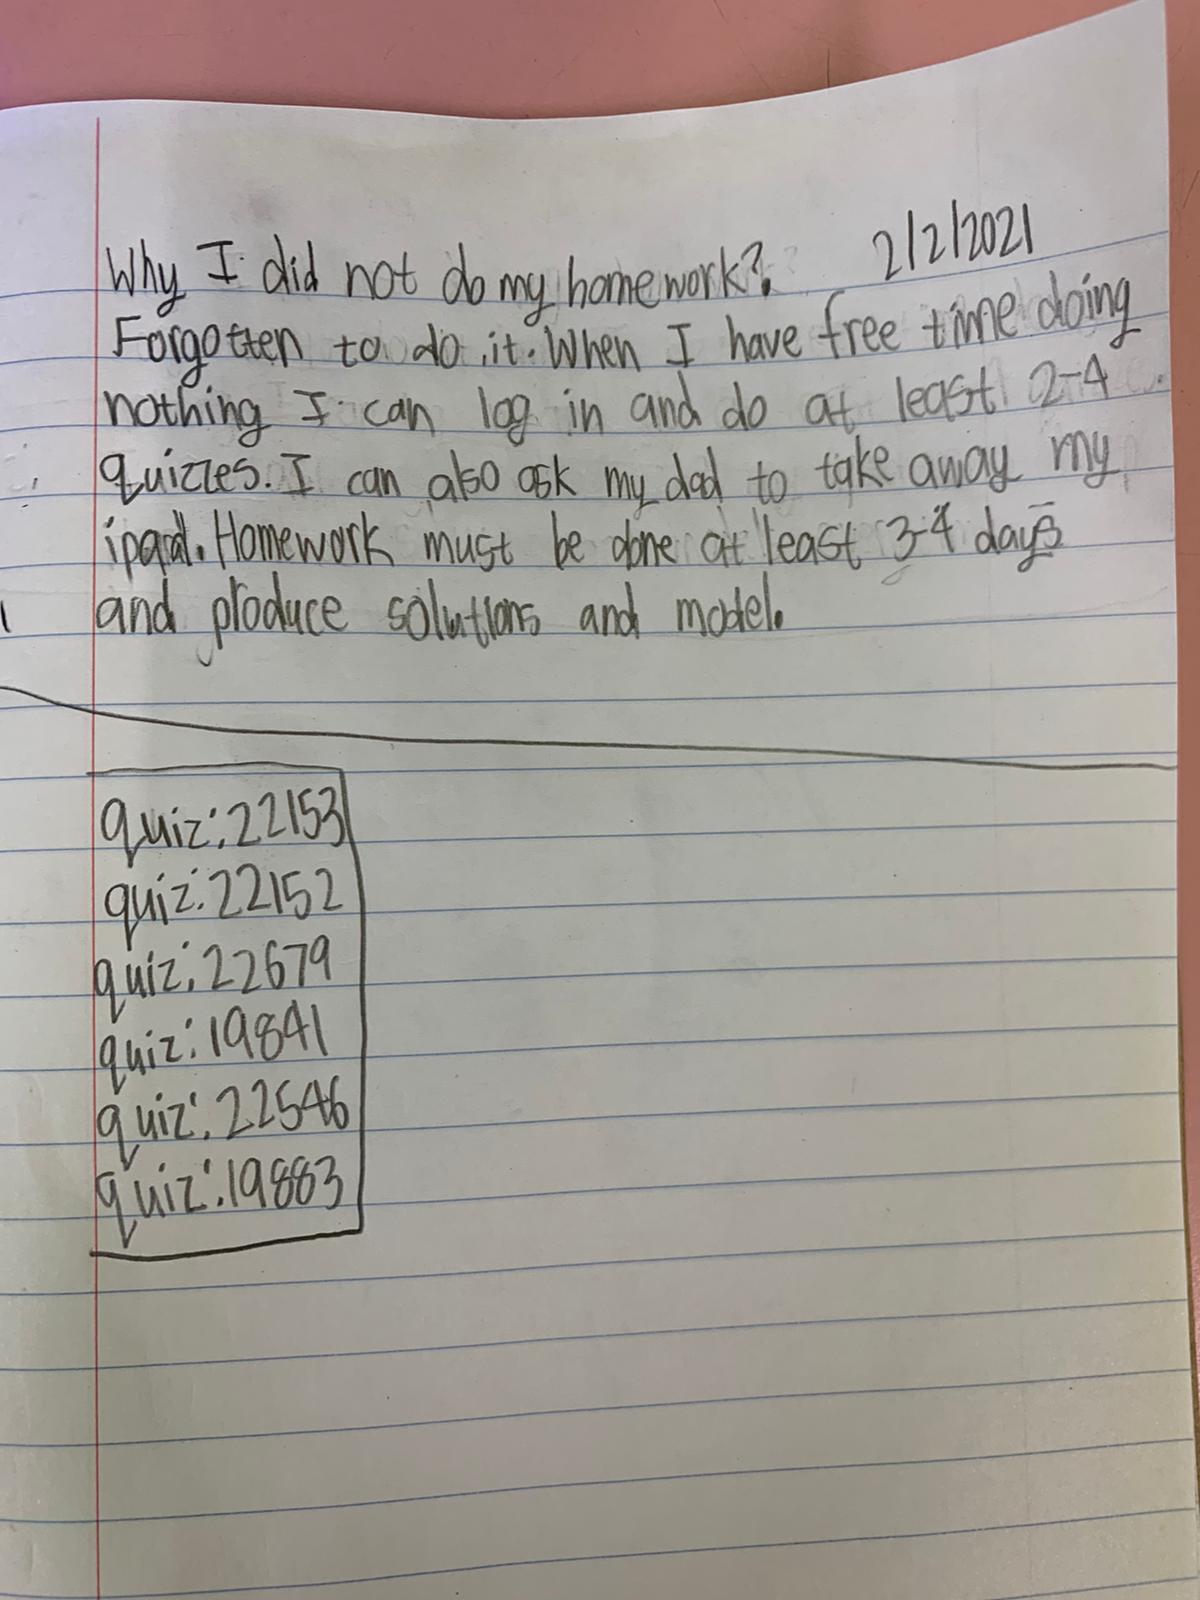 Why I did not do my homework? 2/2/2021
Forgotten to do it. When I have free time doing
nothing I can log in and do at least 2-4
quizzes. I can also ask my dad to take away my
ipad. Homework must be done at least 3-4 days
and produce solutions and model.
quiz: 22153
quiz: 22152
quiz: 22679
quiz: 19841
quiz: 22546
quiz: 19883